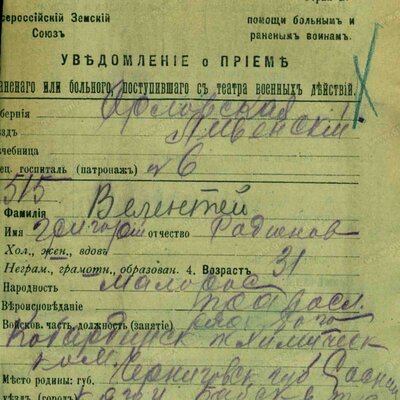 сероссійскій Земскій
Союзъ
помощи больнымъ и
раненымъ воинамъ.
УВѢДОМЛЕНІЕ о ПРІЕМѢ
аненаго или больного, поступившаго съ театра военныхъ дѣйствій.
бернія Орловская
ѣздъ Ливенскій
чебница
ец. госпиталь (патронажъ) № 6
515
Фамилія Велентей
Имя Григорій отчество Радіонов
Хол., жен., вдовъ
Неграм., грамотн., образован. 4. Возрастъ 31
Народность малорос
Вѣроисповѣданіе православ
Войсков. часть, должность (занятіе)
Мѣсто родины: губ. Черниговск губ Сосниц
уѣздъ (городъ)